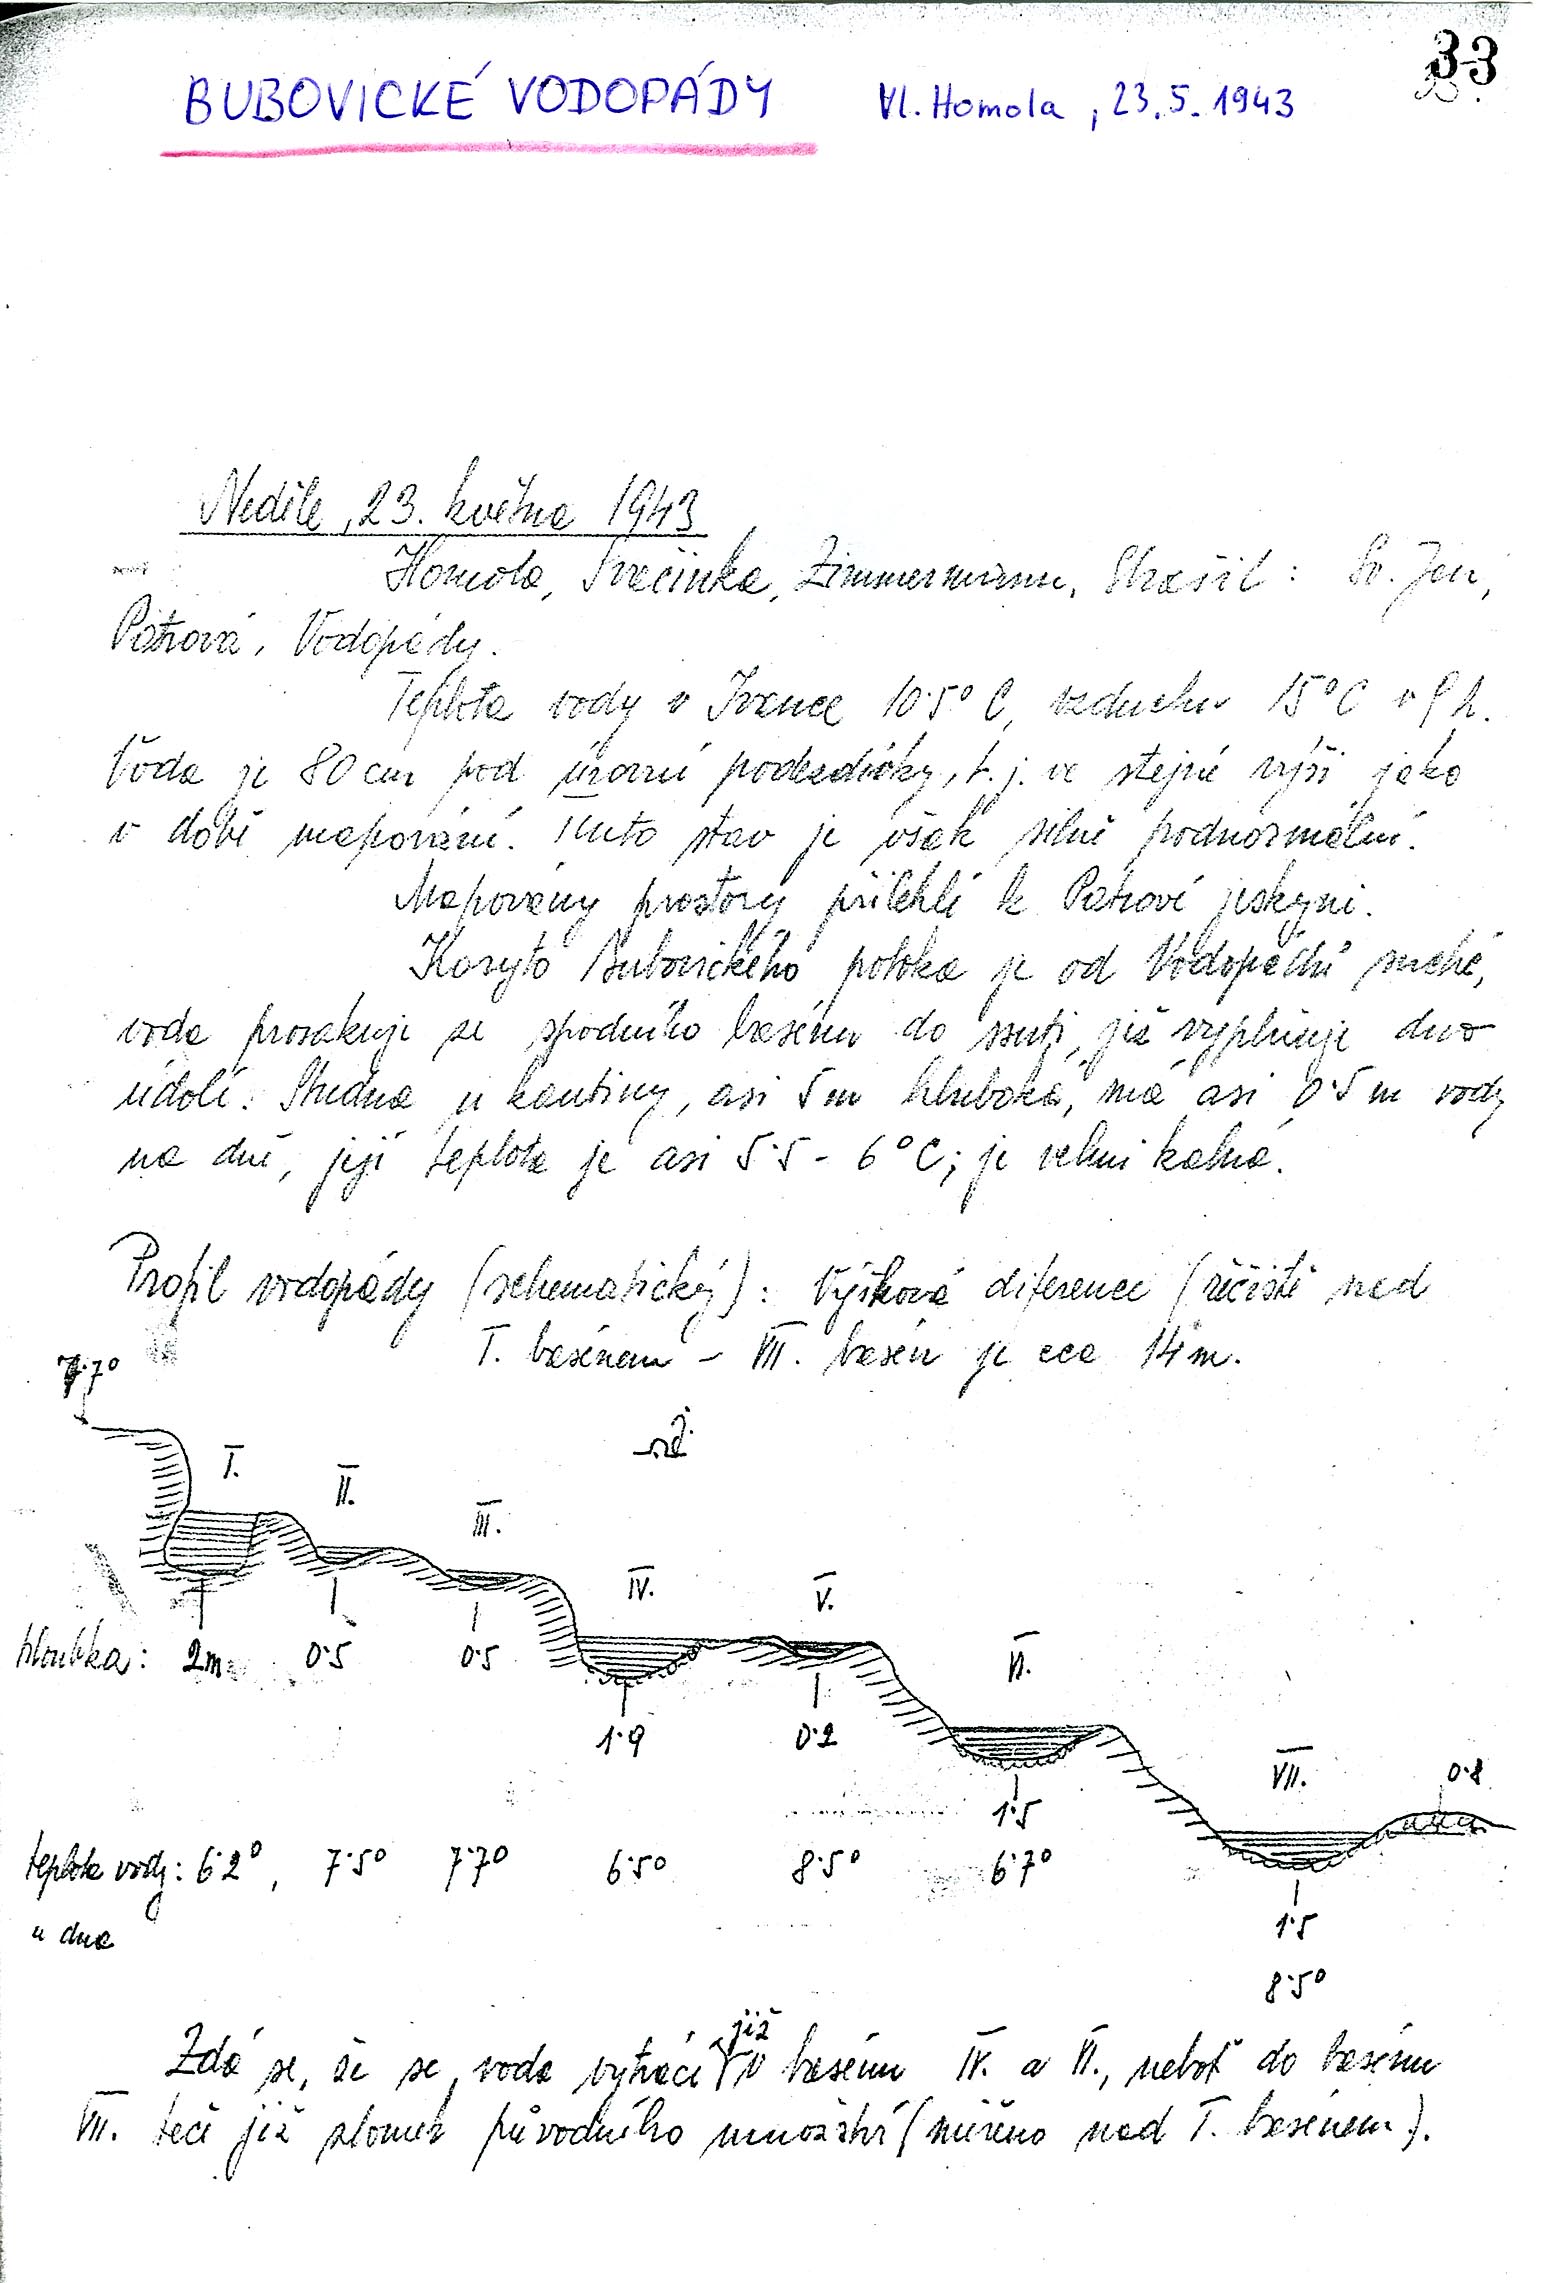 33
BUBOVICKÉ VODOPÁDY Vl. Homola, 23.5.1943
Neděle, 23. května 1943
Homola, Svačinka, Zimmermann, Strašil: Sv. Jan,
Patrová, Vodopády.
Teplota vody v Ivance 10·5° C, vzduchu 15°C v 9 h.
Voda je 80 cm pod úrovní podezdívky, t.j. ve stejné výši jako
v době mapování. Tento stav je však silně podnormální.
Mapovány prostory přilehlé k Patrové jeskyni.
Koryto Bubovického potoka je od Vodopádů suché,
voda prosakuje se spodního basénu do ssuti, jež vyplňuje dno
údolí. Studna u kantiny, asi 5 m hluboká, má asi 0·5 m vody
na dně, její teplota je asi 5·5 - 6°C; je velmi kalná.
Profil vodopády (schematický): Výšková diference (řečiště nad
I. basénem - VII. basén je cca 14 m.
7·7°
I.
II.
III.
IV.
V.
VI.
VII.
0·8
hloubka: 2m 0·5 0·5
1·9 0·2
1·5
teplota vody: 6·2°, 7·5° 7·7° 6·5° 8·5° 6·7°
u dna
1·5
8·5°
již
Zdá se, že se voda vytrácí v basénu IV. a VI., neboť do basénu
VII. teče již zlomek původního množství (měřeno nad I. basénem).